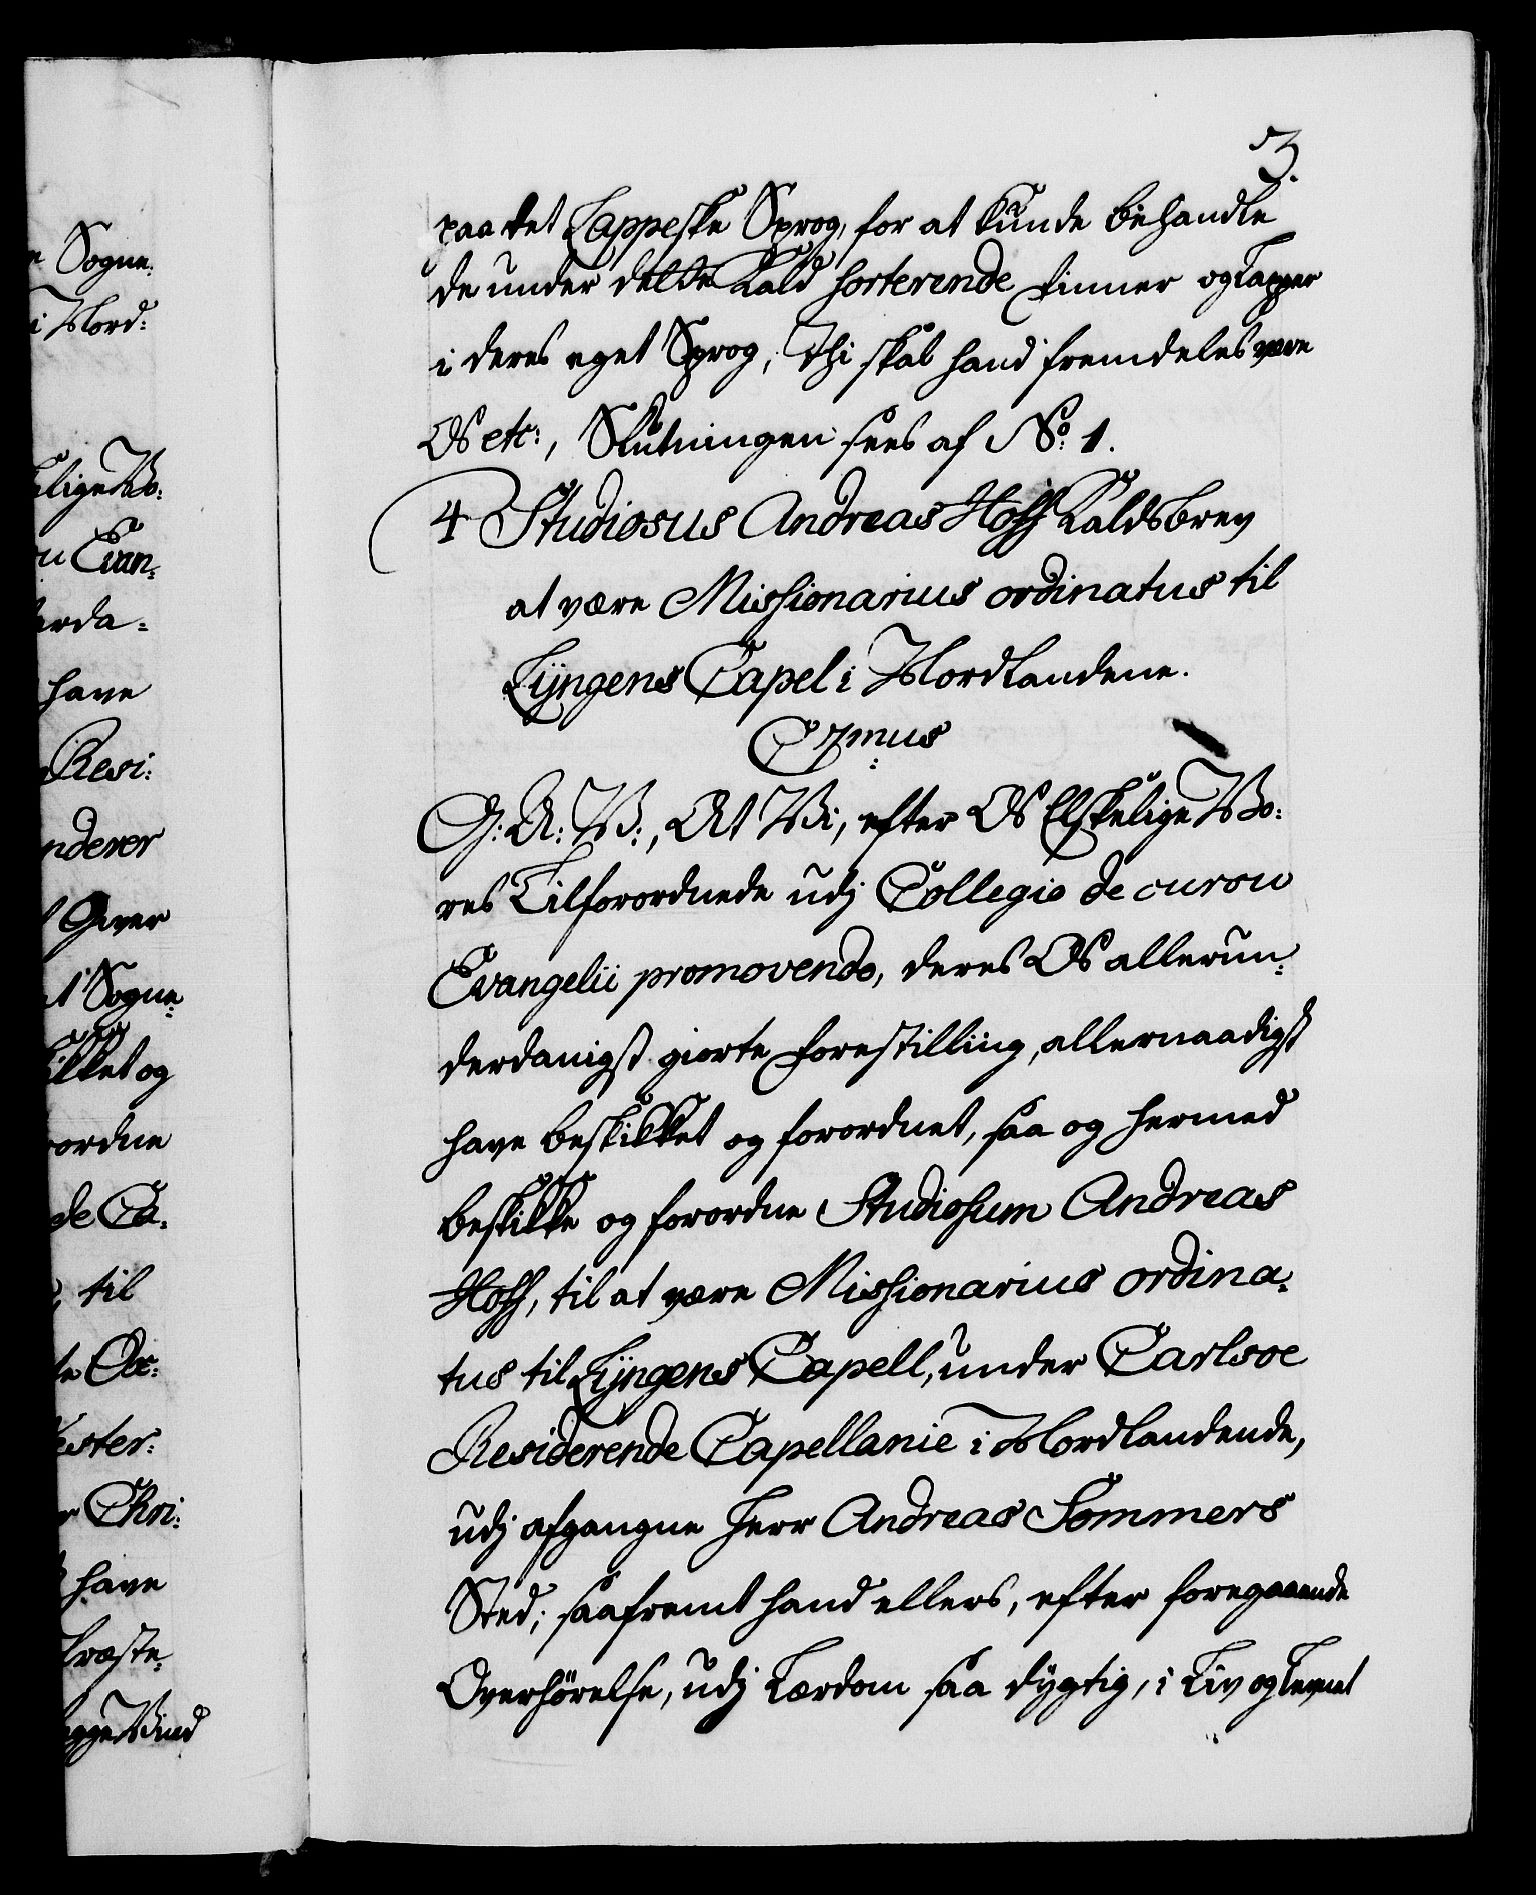 3.
paa det Lappeske Sprog, for at kunde behandle
de under dette Kald sorterende Finner og Lapper
i deres eget Sprog, Thi skal hand fremdeles være
Os etc:, Slutningen sees af No: 1.
4 Studiosus Andreas Hoff Kaldsbrev
at være Missionarius ordinatus til
Lÿngens Capel i Nordlandene.
C 7mus
G: A: V:, At Vi, efter Os Elskelige Vo:
res Tilforordnede udj Collegio de cursu
Evangelii promovendo, deres Os allerun:
derdanigst giorte Forestilling, allernaadigst
have beskikket og forordnet, saa og hermed
beskikke og forordne Studiosum Andreas
Hoff, til at være Missionarius ordina:
tus til Lÿngens Capell, under Carlsøe
Residerende Capellanie i Nordlandende,
udj afgangne Herr Andreas Sommers
Sted; saafremt hand ellers, efter foregaaende
Overhörelse, udj Lærdom saa dygtig, i Liv og Levnet
e Sogne:
i Nord:
elige Vo:
su Evan:
erda:
have
Resi:
nderer
Giver
et Sogne:
ikket og
ordne
de Ca:
til
ester:
r Chri:
have
Præste:
egge Vind